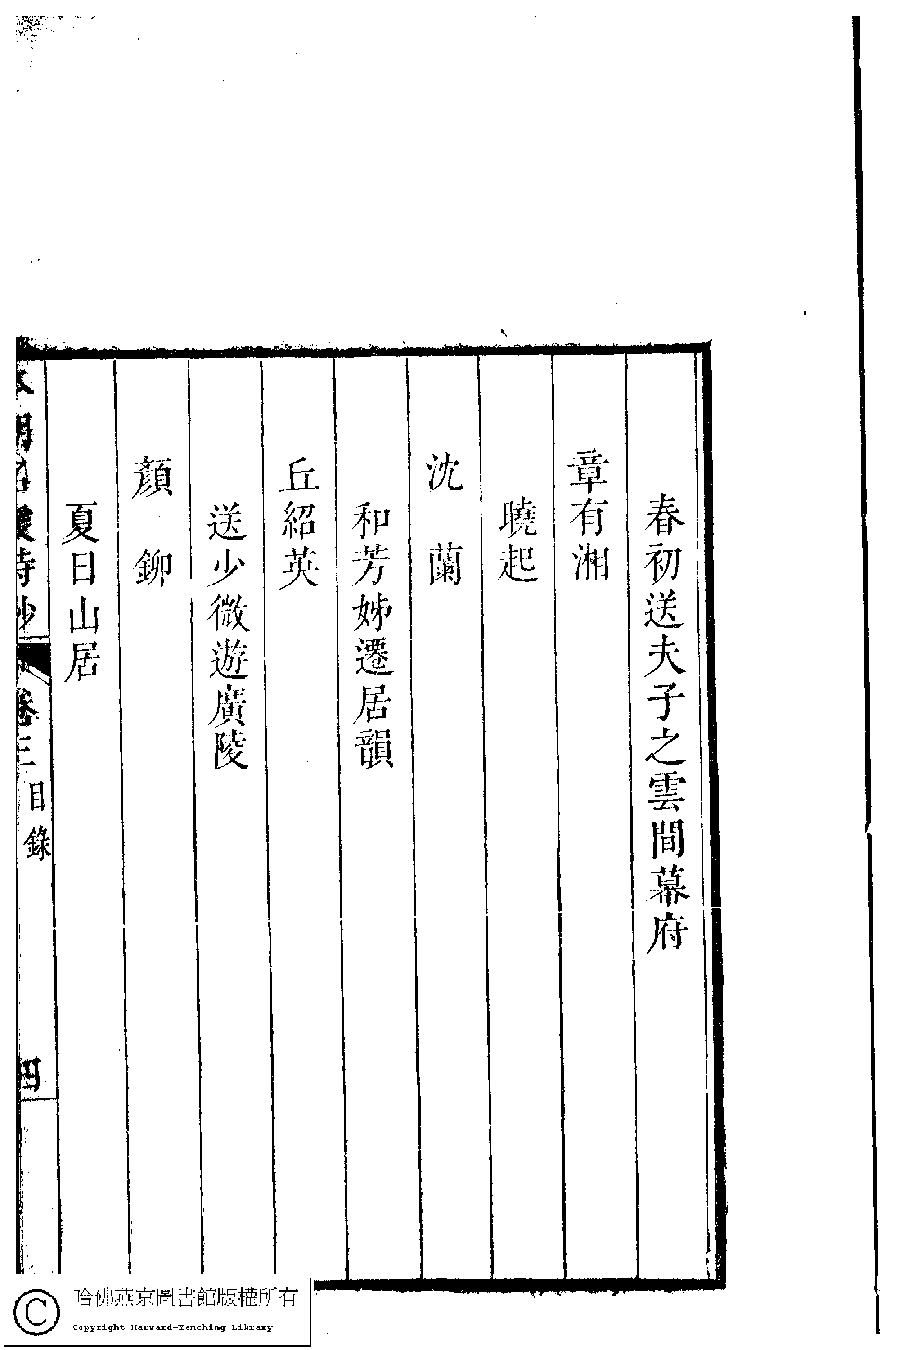 春初送夫子之雲間幕府
章有湘
曉起
沈蘭
和芳姊遷居韻
丘紹英
送少微遊廣陵
顏鉚
夏日山居
本朝名媛詩鈔 卷三 目錄 四
哈佛燕京圖書館版權所有
Copyright Harvard-Yenching Library